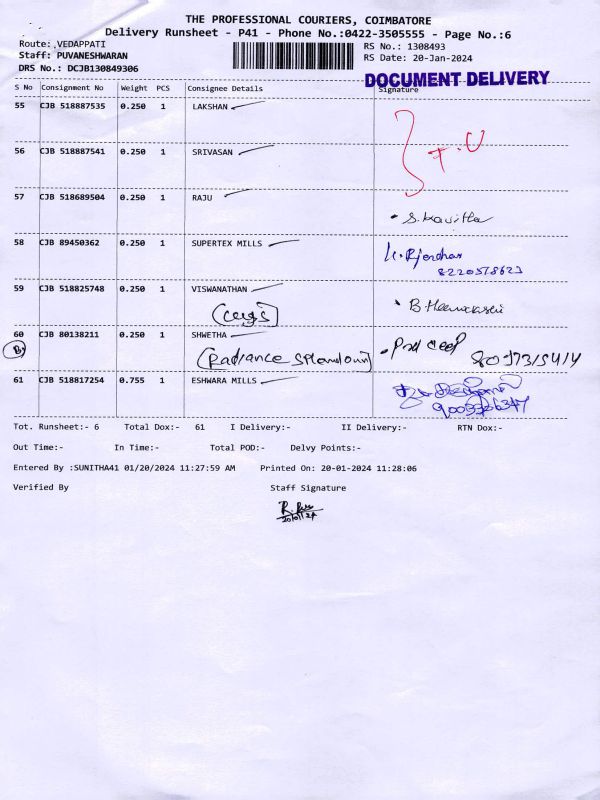 THE PROFESSIONAL COURIERS, COIMBATORE
Delivery Runsheet - P41 - Phone No.:0422-3505555 - Page No.:6
Route: ,VEDAPPATI
RS No.: 1308493
Staff: PUVANESHWARAN
RS Date: 20-Jan-2024
DRS No.: DCJB130849306
DOCUMENT DELIVERY
S No Consignment No Weight PCS Consignee Details Signature
55 CJB 518887535 0.250 1 LAKSHAN
56 CJB 518887541 0.250 1 SRIVASAN
57 CJB 518689504 0.250 1 RAJU
S. Kavitha
58 CJB 89450362 0.250 1 SUPERTEX MILLS
8220578623
59 CJB 518825748 0.250 1 VISWANATHAN
60 CJB 80138211 0.250 1 SHWETHA
(Radiance
61 CJB 518817254 0.755 1 ESHWARA MILLS
Tot. Runsheet:- 6 Total Dox:- 61 I Delivery:- II Delivery:- RTN Dox:-
Out Time:- In Time:- Total POD:- Delvy Points:-
Entered By :SUNITHA41 01/20/2024 11:27:59 AM Printed On: 20-01-2024 11:28:06
Verified By Staff Signature